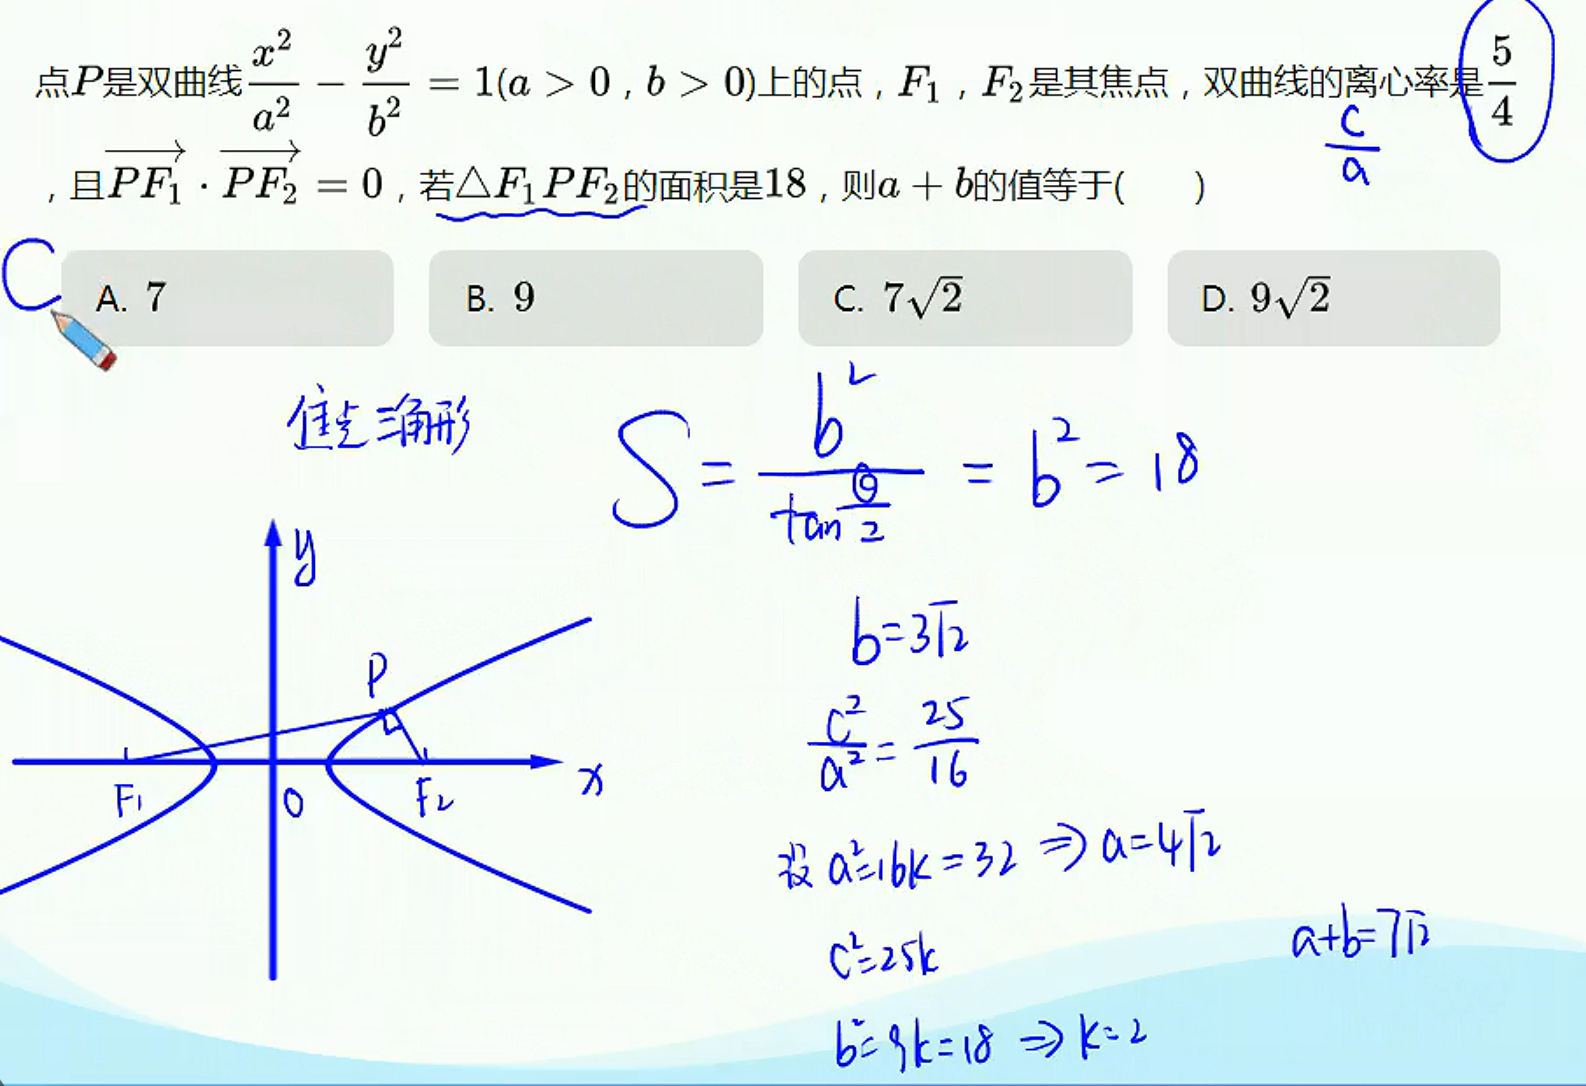 点P是双曲线 x²/a² − y²/b² = 1(a > 0，b > 0)上的点，F₁，F₂是其焦点，双曲线的离心率是 5/4
c/a
，且PF₁→ · PF₂→ = 0，若△F₁PF₂的面积是18，则a + b的值等于(　　)
C
A. 7
B. 9
C. 7√2
D. 9√2
焦点三角形
S = b²/(tan θ/2) = b² = 18
y
b=3√2
P
c²/a² = 25/16
F₁ O F₂ x
设 a²=16k=32 ⇒ a=4√2
a+b=7√2
c²=25k
b²=9k=18 ⇒ k=2